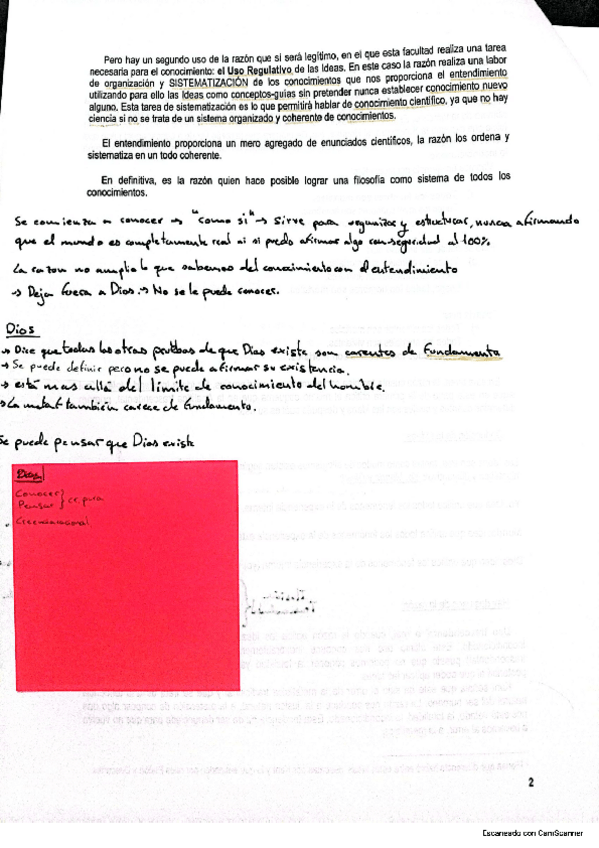 Pero hay un segundo uso de la razón que si será legítimo, en el que esta facultad realiza una tarea
necesaria para el conocimiento: el Uso Regulativo de las Ideas. En este caso la razón realiza una labor
de organización y SISTEMATIZACIÓN de los conocimientos que nos proporciona el entendimiento
utilizando para ello las Ideas como conceptos-guías sin pretender nunca establecer conocimiento nuevo
alguno. Esta tarea de sistematización es lo que permitirá hablar de conocimiento científico, ya que no hay
ciencia si no se trata de un sistema organizado y coherente de conocimientos.
El entendimiento proporciona un mero agregado de enunciados científicos, la razón los ordena y
sistematiza en un todo coherente.
En definitiva, es la razón quien hace posible lograr una filosofía como sistema de todos los
conocimientos.
Se comienza a conocer → "como si" → Sirve para organizar y estructurar, nunca afirmando
que el mundo es completamente real ni si puedo afirmar algo con seguridad al 100%
La razón no amplia lo que sabemos del conocimiento con el entendimiento
→ Deja fuera a Dios. → No se le puede conocer.
Dios
→ Dice que todas las otras pruebas de que Dios existe son carentes de fundamento
→ Se puede definir pero no se puede afirmar su existencia.
→ está más allá del límite de conocimiento del hombre.
→ La metaf también carece de fundamento.
Se puede pensar que Dios existe
Dios
Conocer
Pensar } cr. pura
Creencia moral
2
Escaneado con CamScanner